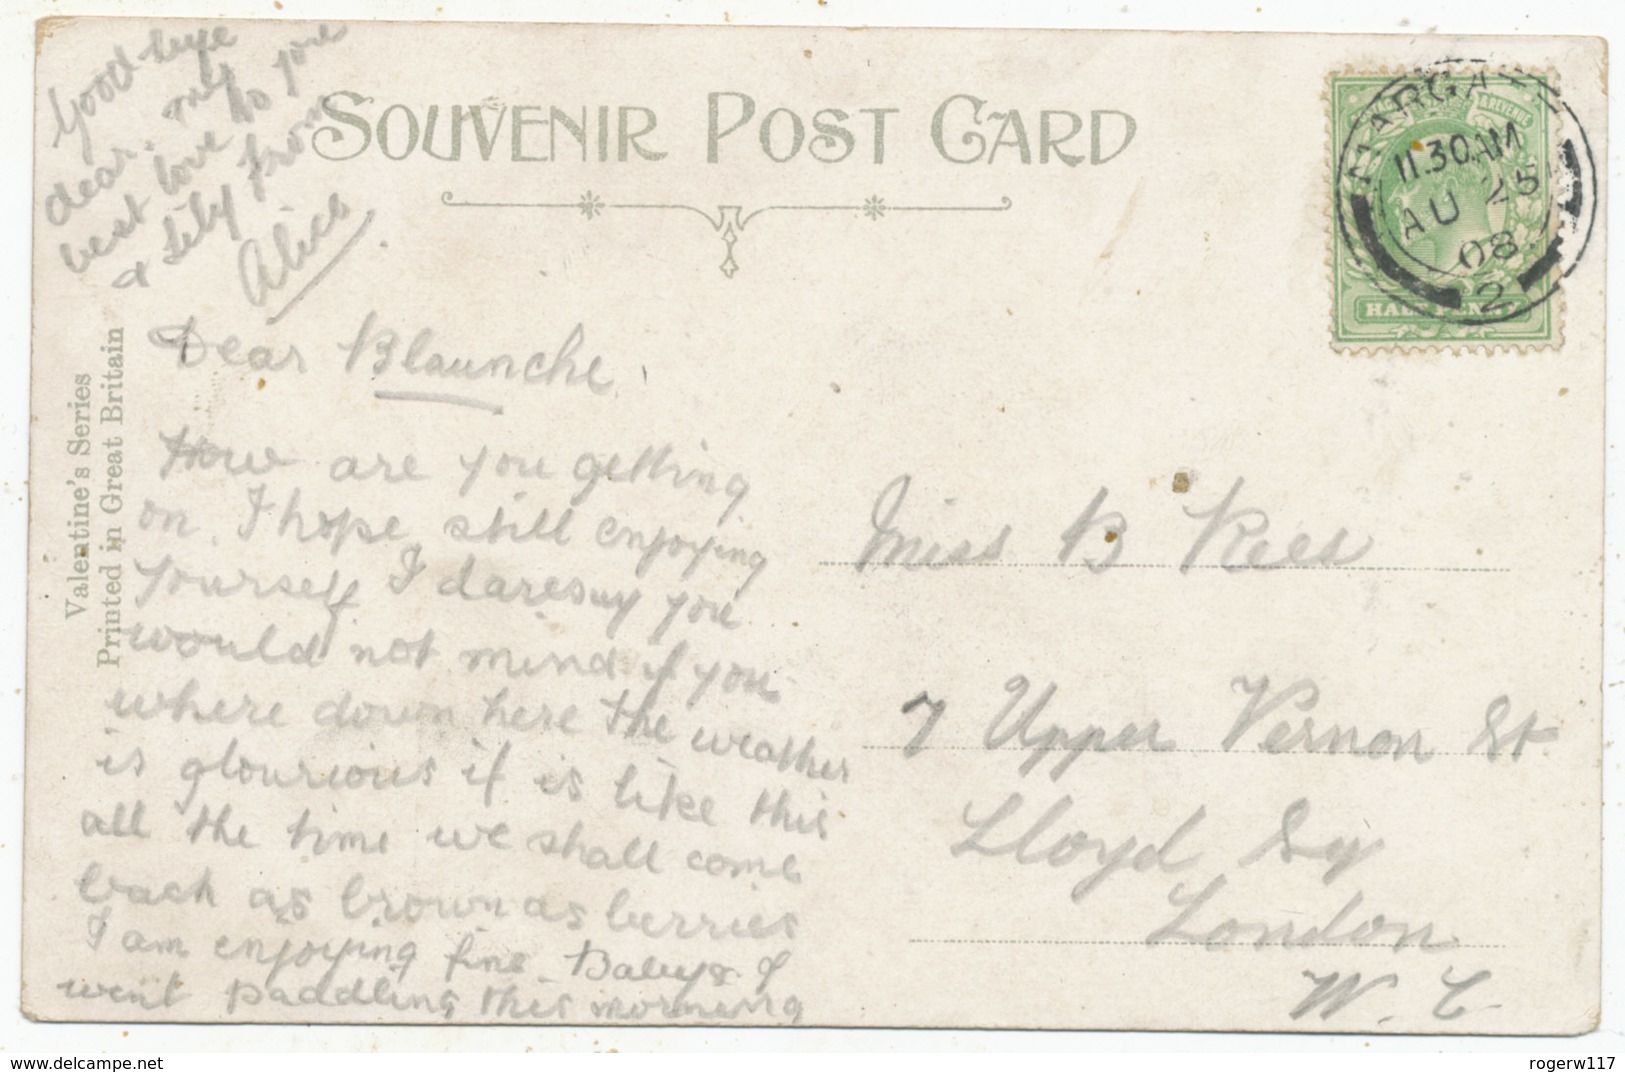 Good-bye
dear. my
best love to you
& Lily from
Alice
SOUVENIR POST CARD
MARGA
11.30 AM
AU 25
08
2
HALF PENNY
Valentine's Series
Printed in Great Britain
Dear Blaunche
How are you getting
on. I hope still enjoying
yourself I daresay you
would not mind if you
where down here the weather
is glourious if is like this
all the time we shall come
back as brown as berries
I am enjoying fine. Baby & I
went paddling this morning
Miss B Rees
7 Upper Vernon St
Lloyd Sq
London
W. C.
delcampe.net
rogerw117